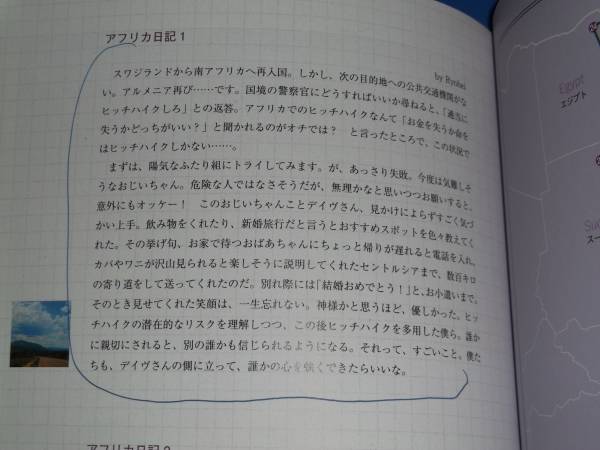 アフリカ日記 1
by Ryohei
スワジランドから南アフリカへ再入国。しかし、次の目的地への公共交通機関がな
い。アルメニア再び……です。国境の警察官にどうすればいいか尋ねると、「適当に
ヒッチハイクしろ」との返答。アフリカでのヒッチハイクなんて「お金を失うか命を
失うかどっちがいい？」と聞かれるのがオチでは？　と言ったところで、この状況で
はヒッチハイクしかない……。
まずは、陽気なふたり組にトライしてみます。が、あっさり失敗。今度は気難しそ
うなおじいちゃん。危険な人ではなさそうだが、無理かなと思いつつお願いすると、
意外にもオッケー！　このおじいちゃんことデイヴさん、見かけによらずすごく気づ
かい上手。飲み物をくれたり、新婚旅行だと言うとおすすめスポットを色々教えてく
れた。その挙げ句、お家で待つおばあちゃんにちょっと帰りが遅れると電話を入れ、
カバやワニが沢山見られると楽しそうに説明してくれたセントルシアまで、数百キロ
の寄り道をして送ってくれたのだ。別れ際には「結婚おめでとう！」と、お小遣いまで。
そのとき見せてくれた笑顔は、一生忘れない。神様かと思うほど、優しかった。ヒッ
チハイクの潜在的なリスクを理解しつつ、この後ヒッチハイクを多用した僕ら。誰か
に親切にされると、別の誰かも信じられるようになる。それって、すごいこと。僕た
ちも、デイヴさんの側に立って、誰かの心を強くできたらいいな。
Egypt
エジプト
スー